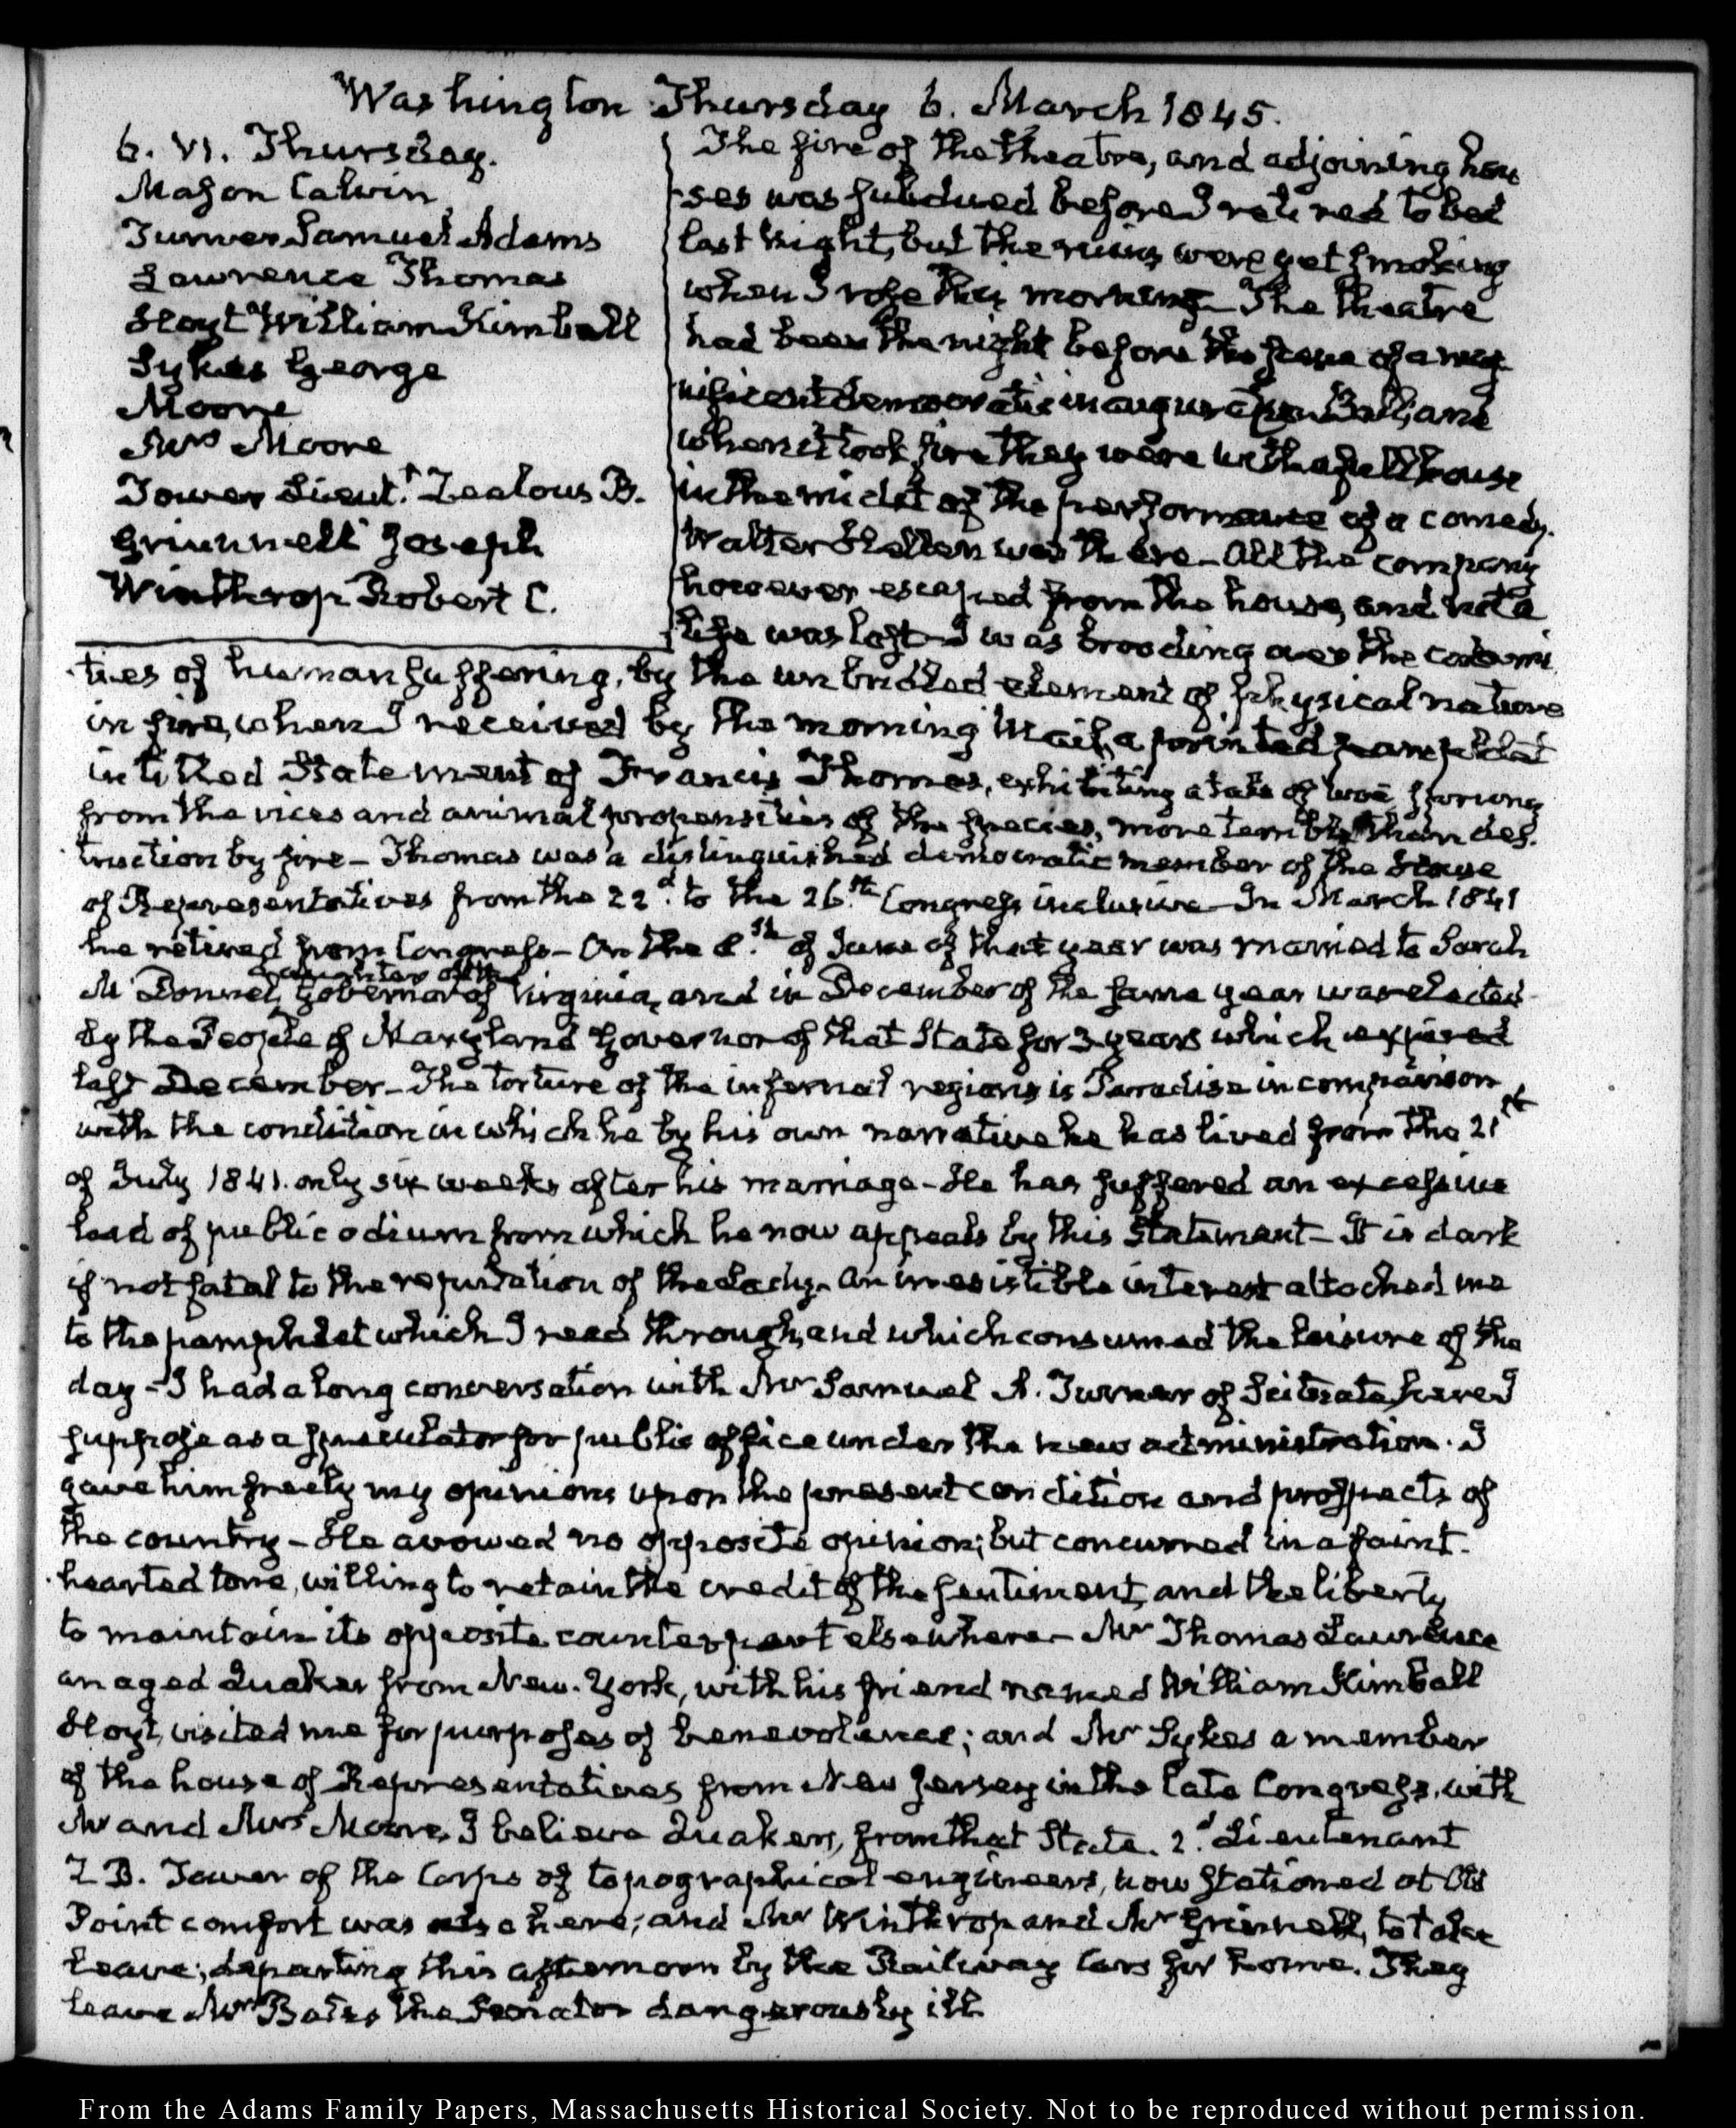 Washington Thursday 6. March 1845.
6. VI. Thursday.
Mason Calvin
Turner Samuel Adams
Lawrence Thomas
Hoyt William Kimball
Sykes George
Moore
Mrs Moore
Tower Lieut.t Zealous B.
Grinnell Joseph
Winthrop Robert C.
The fire of the theatre, and adjoining hou
ses was subdued before I retired to bed
last night, but the ruins were yet smoking
when I rose this morning— The theatre
had been the night before the scene of a mag-
nificent democratic inauguration Ball, and
when it took fire they were with a full house
in the midst of the performance of a comedy.
Walter Hellen was there— All the company
however escaped from the house, and not a
life was lost— I was brooding over the calami
ties of human suffering, by the unbridled element of physical nature
in fire, when I received by the morning Mail, a printed pamphlet
intitled Statement of Francis Thomas, exhibiting a tale of woe, sprung
from the vices and animal propensities of the species, more terrible than des-
truction by fire— Thomas was a distinguished democratic member of the House
of Representatives from the 22d. to the 26.th Congress inclusive— In March 1841
he retired from Congress— On the 8.th of June of that year was married to Sarah
McDowell, daughter of the Governor of Virginia, and in December of the same year was elected
by the People of Maryland Governor of that State for 3 years which expired
last December— The torture of the infernal regions is Parradise in comparison
with the condition in which he by his own narrative he has lived from the 21st
of July 1841. only six weeks after his marriage— He has suffered an excessive
load of public odium from which he now appeals by this Statement— It is dark
if not fatal to the reputation of the Lady— An irresistible interest attached me
to the pamphlet which I read through, and which consumed the leisure of the
day— I had a long conversation with Mr Samuel A. Turner of Scituate, here I
suppose as a speculator for public office under the new administration. I
gave him freely my opinions upon the present condition and prospects of
the country— He avowed no opposite opinion; but concurred in a faint-
hearted tone, willing to retain the credit of the sentiment, and the liberty
to maintain its opposite counterpart elsewhere— Mr Thomas Lawrence
an aged Quaker from New-York, with his friend named William Kimball
Hoyt, visited me for purposes of benevolence; and Mr Sykes a member
of the house of Representatives from New Jersey in the late Congress, with
Mr and Mrs Moore, I believe Quakers, from that State. 2.d Lieutenant
Z B. Tower of the Corps of topographical engineers, now stationed at Old
Point comfort was also here; and Mr Winthrop and Mr Grinnell, to take
leave; departing this afternoon by the Railway Cars for home. They
leave Mr Bates the Senator dangerously ill.
From the Adams Family Papers, Massachusetts Historical Society. Not to be reproduced without permission.